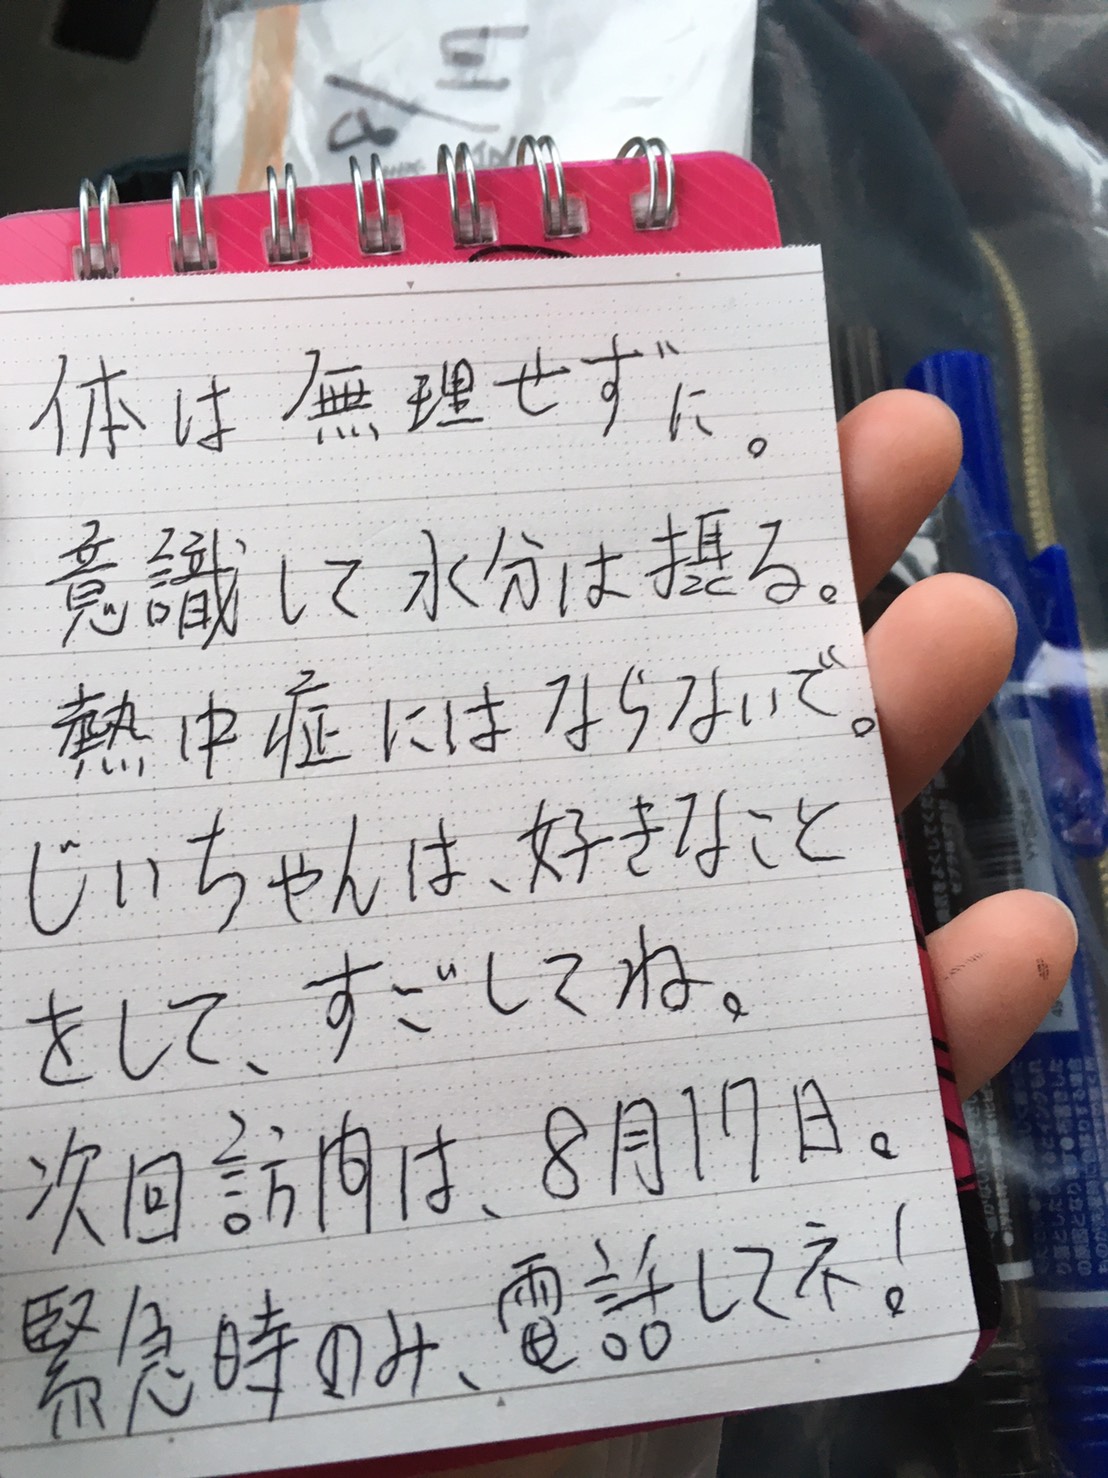 体は無理せずに。
意識して水分は摂る。
熱中症にはならないで。
じいちゃんは、好きなこと
をして、すごしてね。
次回訪問は、8月17日。
緊急時のみ、電話してネ!